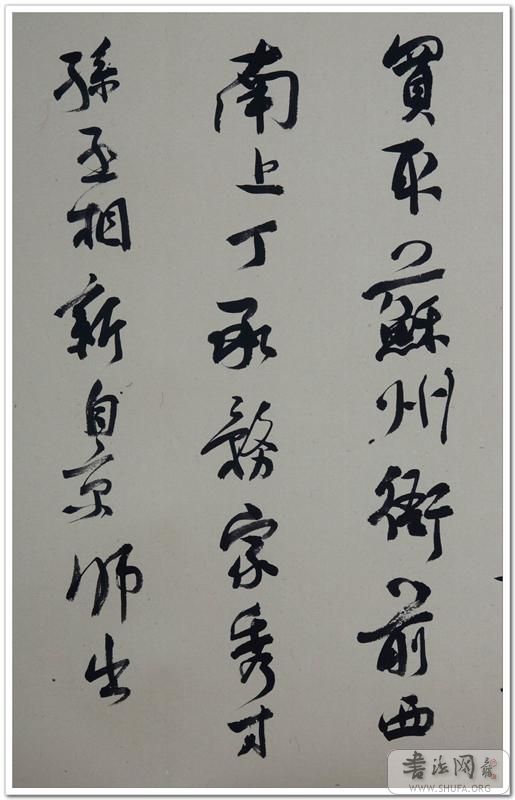 買取蘇州衙前西
南上丁承務家秀才
孫丞相新自京師出
書法网
WWW.SHUFA.ORG